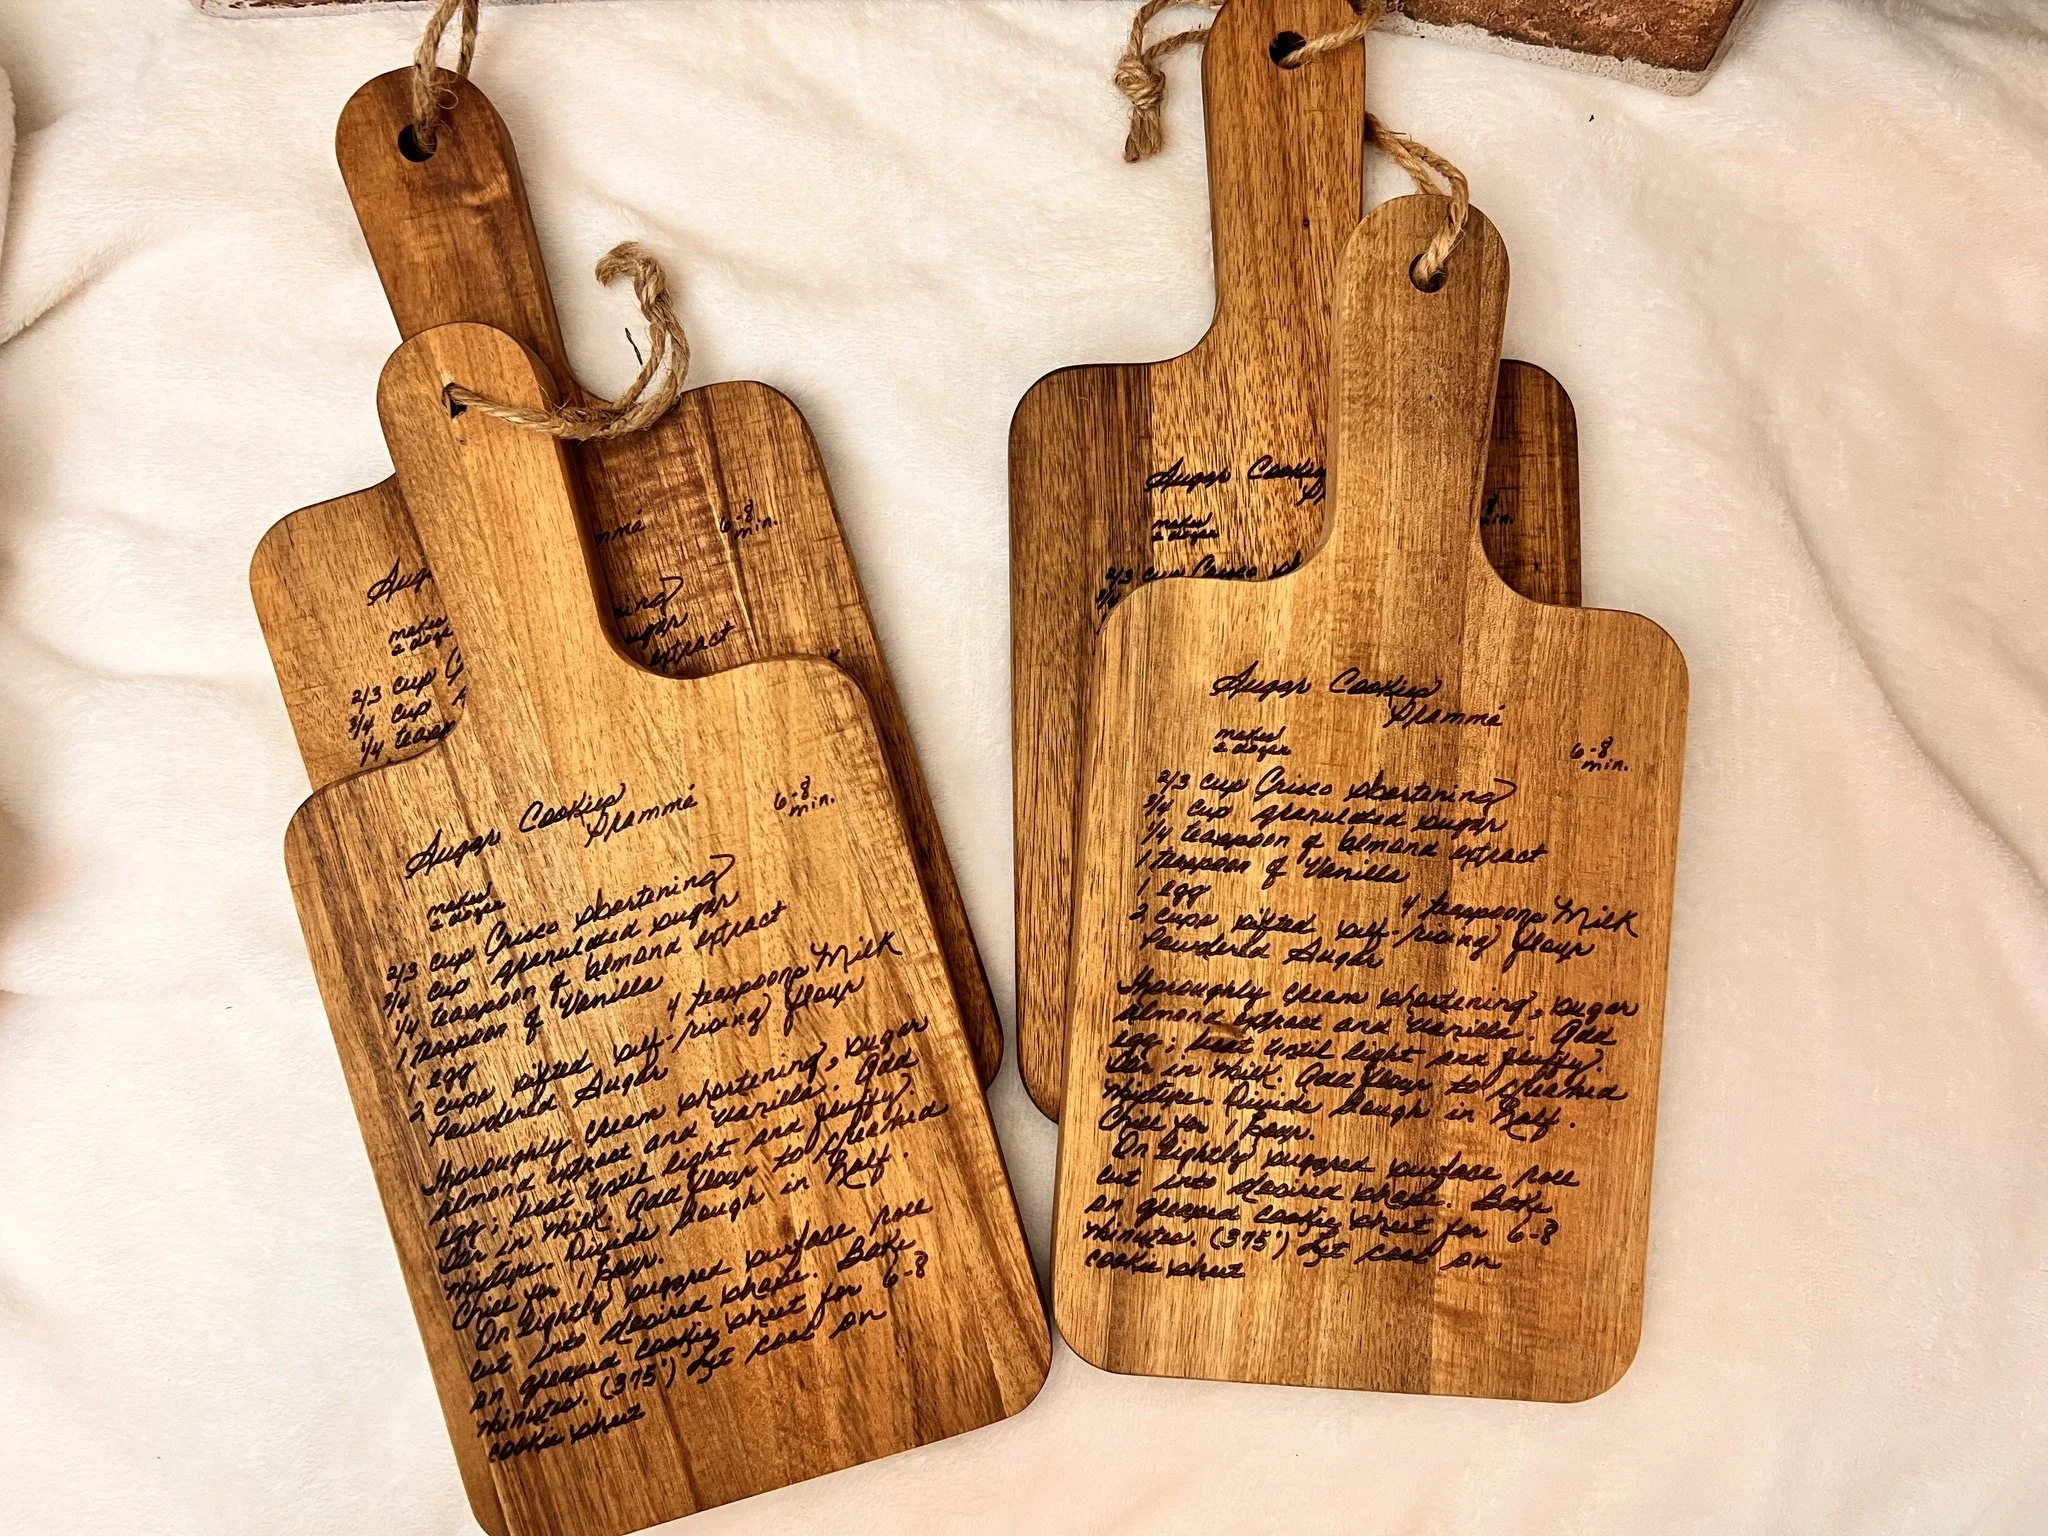 Sugar Cookies
Gramma
makes
2 dozen
6-8
min.
2/3 cup Crisco shortening
3/4 cup granulated sugar
1/4 teaspoon of almond extract
1 teaspoon of Vanilla
1 egg
4 teaspoons Milk
2 cups sifted self-rising flour
Powdered Sugar
Thoroughly cream shortening, sugar
almond extract and vanilla. Add
egg; beat until light and fluffy.
Stir in milk. Add flour to creamed
mixture. Divide dough in half.
Chill for 1 hour.
On lightly sugared surface roll
cut into desired shape. Bake
on greased cookie sheet for 6-8
minutes. (375°) Let cool on
cookie sheet
Sugar Cookies
Gramma
makes
2 dozen
6-8
min.
2/3 cup Crisco shortening
3/4 cup granulated sugar
1/4 teaspoon of almond extract
1 teaspoon of Vanilla
1 egg
4 teaspoons Milk
2 cups sifted self-rising flour
Powdered Sugar
Thoroughly cream shortening, sugar
almond extract and vanilla. Add
egg; beat until light and fluffy.
Stir in milk. Add flour to creamed
mixture. Divide dough in half.
Chill for 1 hour.
On lightly sugared surface roll
cut into desired shape. Bake
on greased cookie sheet for 6-8
minutes. (375°) Let cool on
cookie sheet
6-8
min.
makes
2/3 cup
3/4 cup
1/4
extract
Sugar Cookies
makes
2 dozen
2/3 cup Crisco